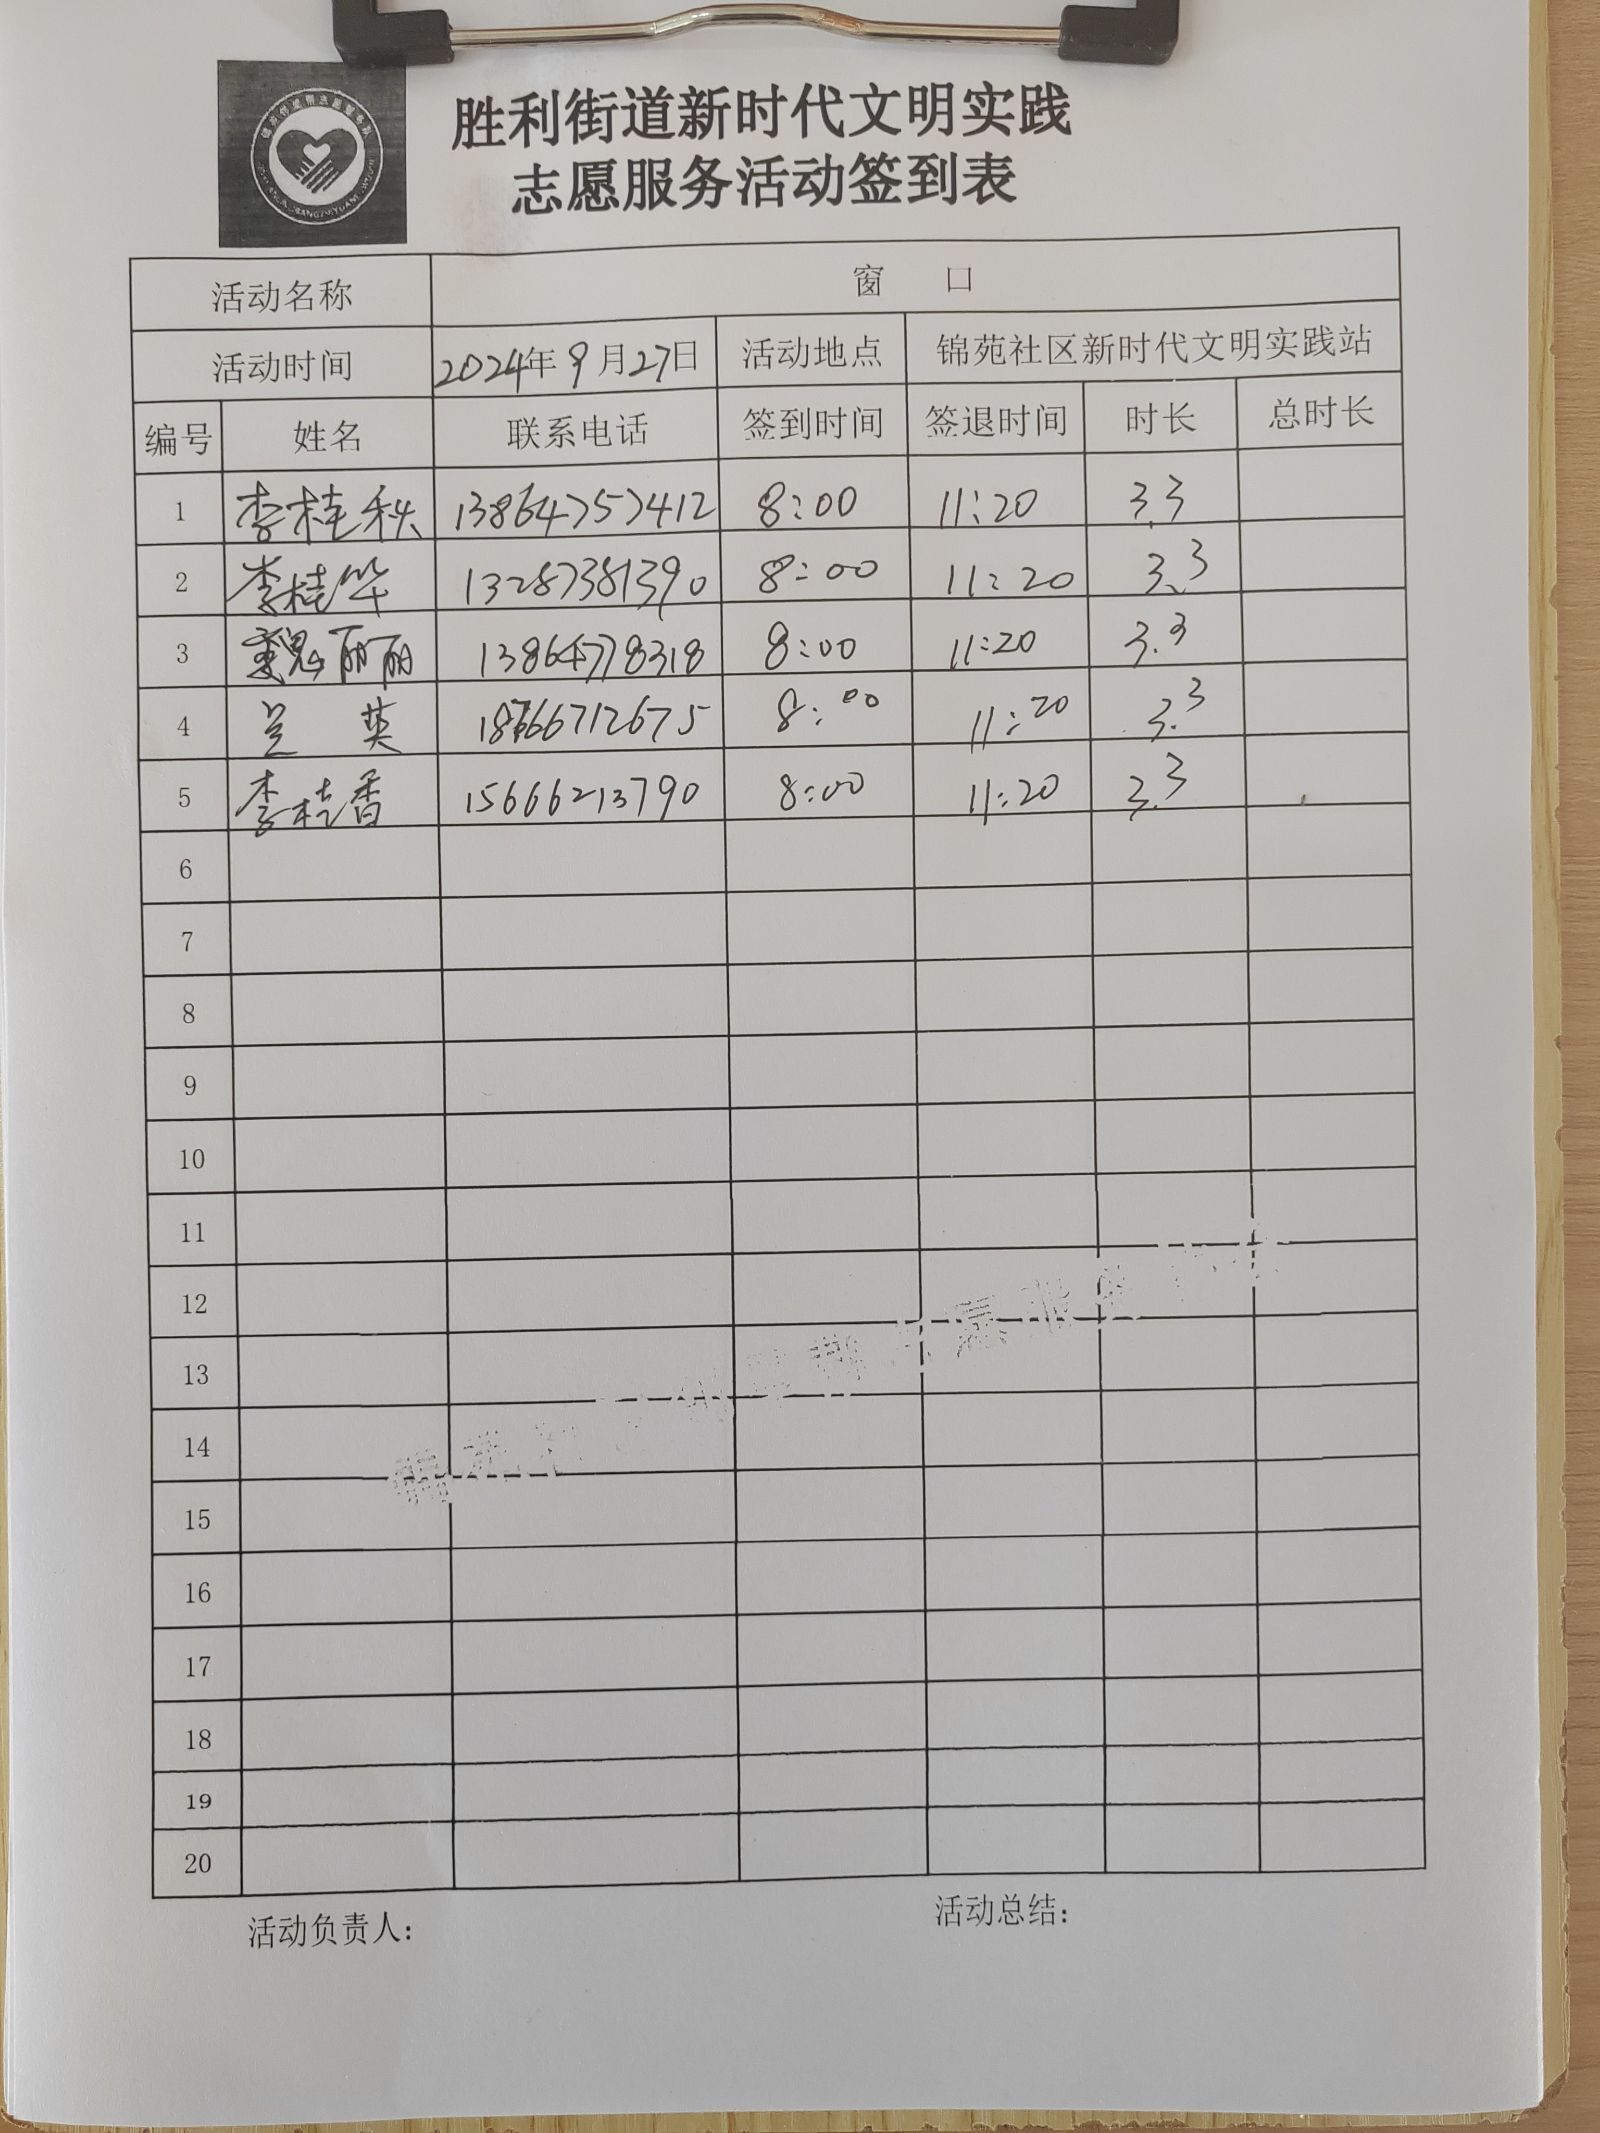 胜利街道新时代文明实践
志愿服务活动签到表
活动名称 窗 口
活动时间 2024年9月27日 活动地点 锦苑社区新时代文明实践站
编号 姓名 联系电话 签到时间 签退时间 时长 总时长
1 李桂秋 13864757412 8:00 11:20 3.3
2 李桂华 13287381390 8:00 11:20 3.3
3 魏丽丽 13864778318 8:00 11:20 3.3
4 兰英 18766712675 8:00 11:20 3.3
5 李桂香 15666213790 8:00 11:20 3.3
6
7
8
9
10
11
12
13
14
15
16
17
18
19
20
活动负责人: 活动总结: